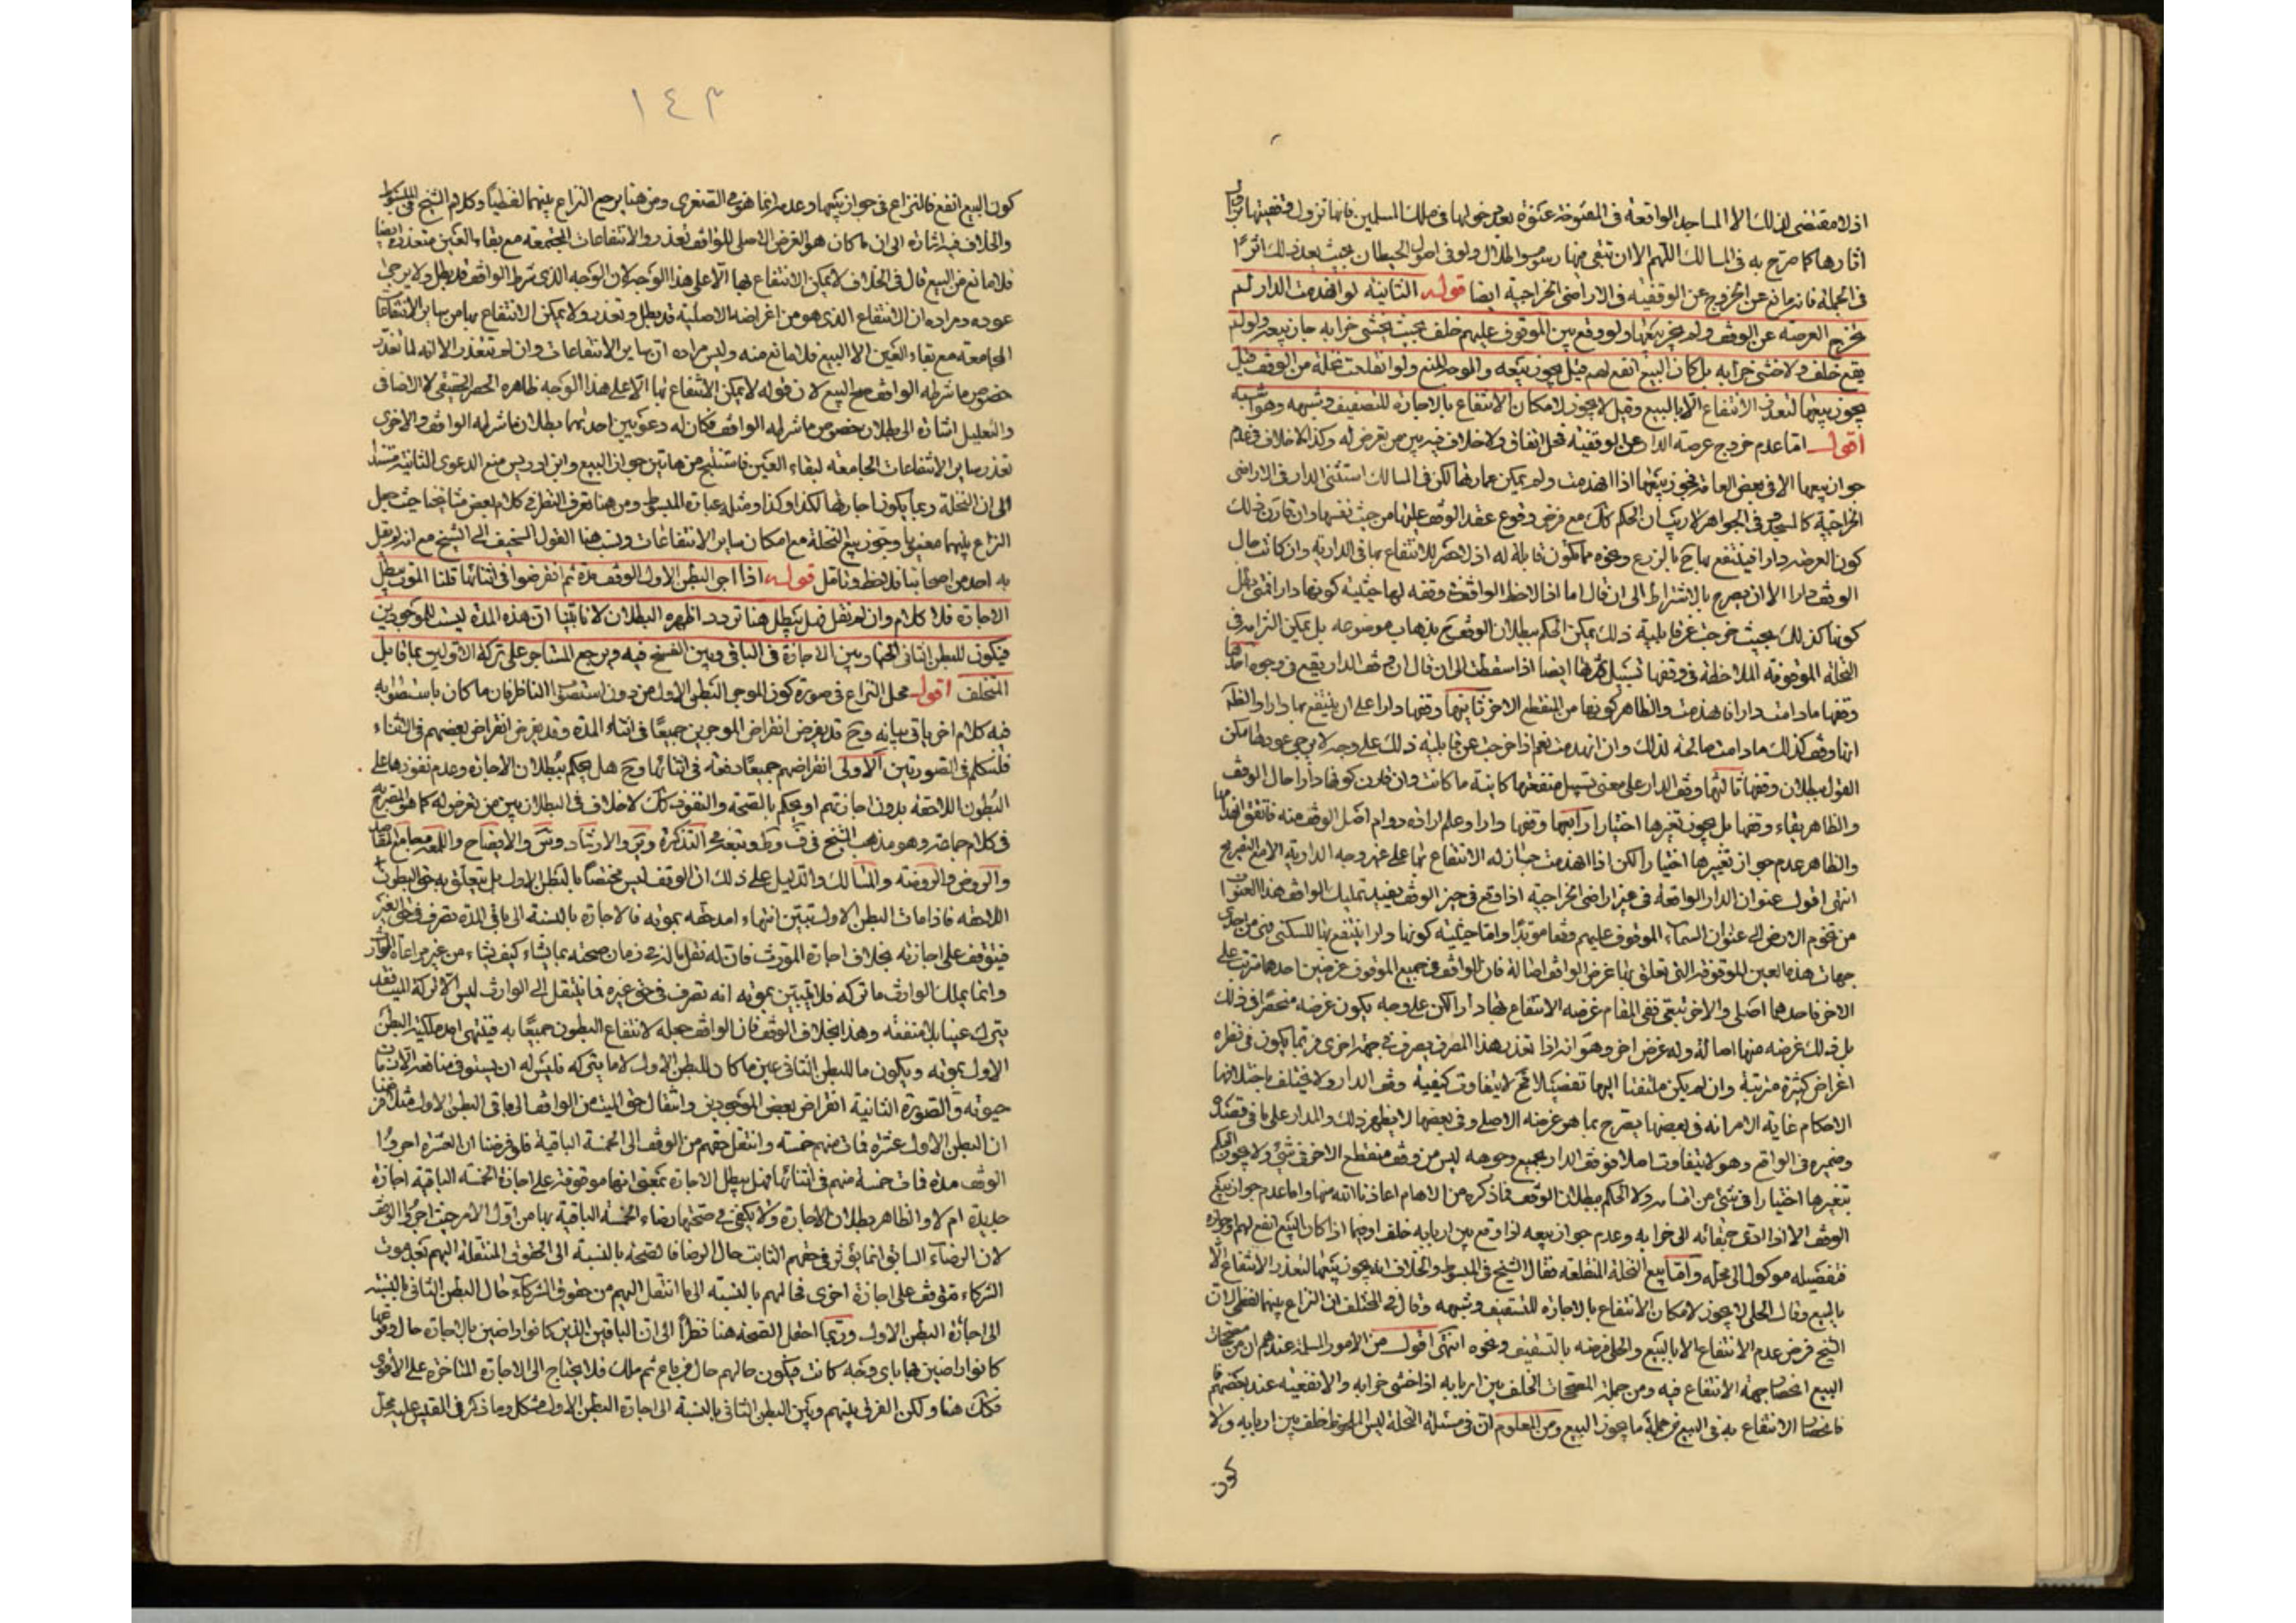 اذ لا مقتضى لذلك الا المساجد الواقعة فى المفتوحة عنوة بعد دخولها فى ملك المسلمين فانها تزول وقفيتها بزوال
اثارها كما صرح به فى المسالك اللهم الا ان تبقى منها رسوم ولو فى اصول الحيطان بحيث يعد ذلك اثرا
فى الجملة فانه مانع عن الخروج عن الوقفية فى الاراضى الخراجية ايضا قوله الثانية لو انهدمت الدار لم
تخرج العرصة عن الوقف ولم يجز بيعها ولو وقع بين الموقوف عليهم خلف بحيث يخشى خرابه جاز بيعه ولو لم
يقع خلف ولا خشى خرابه بل كان البيع انفع لهم قيل يجوز بيعه والوجه المنع ولو انقلعت نخلة من الوقف قيل
يجوز بيعها لتعذر الانتفاع الا بالبيع وقيل لا يجوز لامكان الانتفاع بالاجارة للتسقيف وشبهه وهو اشبه
اقول اما عدم خروج عرصة الدار عن الوقفية فمحل اتفاق ولا خلاف فيه بين من تعرض له وكذا لا خلاف فى عدم
جواز بيعها الا فى بعض العامة فجوز بيعها اذا انهدمت ولم يمكن عمارتها لكن فى المسالك استثنى الدار فى الاراضى
الخراجية كالمسجد وفى الجواهر لا ريب ان الحكم كك مع فرض وقوع عقد الوقف عليها من حيث نفسها وان قارن ذلك
كون العرصة دارا فينتفع بها ح بالزرع ونحوه مما تكون قابلة له اذ لا حصر للانتفاع بها فى الدارية وان كانت حال
الوقف دارا الا ان يصرح بالاشتراط الى ان قال اما اذا لاحظ الواقف فى وقفه لها حيثية كونها دار افتى بطل
كونها كذلك بحيث خرجت عن قابلية ذلك يمكن الحكم ببطلان الوقف ح بذهاب موضوعه بل يمكن التزامه فى
النخلة الموقوفة الملاحظة فى وقفها تسبيل ثمرتها ايضا اذا سقطت الى ان قال ان وقف الدار يقع فى وجوه احدها
وقفها ما دامت دارا فانهدمت والظاهر كونها من المنقطع الاخر ثانيها وقفها دارا على ان ينتفع بها دارا والظاهر
انها وقف كذلك ما دامت صالحة لذلك وان انهدمت نعم اذا خرجت عن قابلية ذلك على وجه لا يرجى عودها امكن
القول ببطلان وقفها ثالثها وقف الدار على معنى تسبيل منفعتها كاينة ما كانت وان قارن كونها دارا حال الوقف
والظاهر بقاء وقفها بل يجوز تغيرها اختيارا رابعها وقفها دارا وعلم ارادة دوام اصل الوقف منه فاتفق انهدامها
والظاهر عدم جواز تغييرها اختيارا لكن اذا انهدمت جاز له الانتفاع بها على غير وجه الدارية الا مع التصريح
انتهى اقول عنوان الدار الواقعة فى غير اراضى الخراجية اذا وقع فى حيز الوقف يفيد تمليك الواقف هذا العنوان
من تخوم الارض الى عنوان السماء الموقوف عليهم وقفا مؤبدا واما حيثية كونها دارا ينتفع بها للسكنى فهى من احدى
جهات هذه العين الموقوفة التى تعلق بها غرض الواقف اصالة فان للواقف فى جميع الموقوف غرضين احدهما مترتب على
الاخر فاحدهما اصلى والاخر تبعى ففى المقام غرضه الانتفاع بها دارا لكن على وجه يكون غرضه منحصرا فى ذلك
بل ذلك غرضه منها اصالة وله غرض اخر وهو انه اذا تعذر هذا المصرف يصرف فى جهة اخرى فربما يكون فى نظره
اغراض كثيرة مترتبة وان لم يكن ملتفتا اليها تفصيلا فح لا يتفاوت كيفية وقف الدار ولا يختلف باختلافها
الاحكام غاية الامر انه فى بعضها يصرح بما هو غرضه الاصلى وفى بعضها لا يظهر ذلك والمدار على ما فى قصده
وضميره فى الواقع وهو لا يتفاوت اصلا فوقف الدار بجميع وجوهه ليس من وقف منقطع الاخر فى شئ ولا يجوز الحكم
بتغيرها اختيارا فى شئ من اقسامه ولا الحكم ببطلان الوقف فما ذكره من الاوهام اعاذنا الله منها واما عدم جواز بيع
الوقف الا اذا ادى بقائه الى خرابه وعدم جواز بيعه اذا وقع بين اربابه خلف او فيما اذا كان البيع انفع لهم وجوازه
فتفصيله موكول الى محله واما بيع النخلة المنقلعة فقال الشيخ فى المبسوط والخلاف انه يجوز بيعها لتعذر الانتفاع الا
بالبيع وقال الحلى لا يجوز لامكان الانتفاع بالاجارة للتسقيف وشبهه وقال فى المختلف ان النزاع بينهما لفظى لان
الشيخ فرض عدم الانتفاع الا بالبيع والحلى فرضه بالتسقيف ونحوه انتهى اقول من الامور المسلمة عندهم ان من مصححات
البيع انحصار جهة الانتفاع فيه ومن جملة المصححات الخلف بين اربابه اذا خشى خرابه والانفعية عند بعضهم فا
فانحصار الانتفاع به فى البيع من جملة ما يجوز البيع ومن المعلوم ان فى مسئلة النخلة ليس الملحوظ خلف بين اربابه ولا
كون
١٤٣
كون البيع انفع فالنزاع فى جواز بيعها وعدمه انما هو فى الصغرى ومن هنا يرجع النزاع بينهما لفظيا وكلام الشيخ فى المبسوط
والخلاف فيه اشارة الى ان ما كان هو الغرض الاصلى للواقف تعذر والانتفاعات المجتمعة مع بقاء العين متعذرة ايضا
فلا مانع من البيع قال فى الخلاف لا يمكن الانتفاع بها الا على هذا الوجه لان الوجه الذى شرط الواقف قد بطل ولا يرجى
عوده ومراده ان الانتفاع الذى هو من اغراضه الاصلية قد بطل وتعذر ولا يمكن الانتفاع بها من ساير الانتفاعات
الجامعة مع بقاء العين الا البيع فلا مانع منه وليس مراده ان ساير الانتفاعات وان لم تتعذر الا انه لما تعذر
خصوص ما شرطه الواقف صح البيع لان قوله لا يمكن الانتفاع بها الا على هذا الوجه ظاهره الحصر الحقيقى لا الاضافى
والتعليل اشارة الى بطلان خصوص ما شرطه الواقف فكان له دعويين احدهما بطلان ما شرطه الواقف والاخرى
تعذر ساير الانتفاعات الجامعة لبقاء العين فاستنتج من هاتين جواز البيع وابن ادريس منع الدعوى الثانية مستندا
الى ان النخلة ربما يكون اجارتها لكذا وكذا ومثله عبارة المبسوط ومن هنا تعرف النظر فى كلام بعض مشايخنا حيث جعل
النزاع بينهما معنويا وجوز بيع النخلة مع امكان ساير الانتفاعات ونسب هذا القول السخيف الى الشيخ مع انه لم يقل
به احد من اصحابنا فليلحظ وتامل قوله اذا اجر البطن الاول الوقف مدة ثم انقرضوا فى اثنائها قلنا الموت يبطل
الاجارة فلا كلام وان لم نقل فهل يبطل هنا تردد اظهره البطلان لانا تبينا ان هذه المدة ليست للموجودين
فيكون للبطن الثانى الخيار بين الاجازة فى الباقى وبين الفسخ فيه ويرجع المستاجر على تركة الاولين بما قابل
المتخلف اقول محل النزاع فى صورة كون الموجر البطن الاول من دون استصواب الناظر فان ما كان باستصوابه
فيه كلام اخر ياتى بيانه وح قد يفرض انقراض الموجرين جميعا فى اثناء المدة وقد يفرض انقراض بعضهم فى الاثناء
فلنتكلم فى الصورتين الاولى انقراضهم جميعا دفعة فى اثنائها وح هل يحكم ببطلان الاجارة وعدم نفوذها على
البطون اللاحقة بدون اجازتهم او يحكم بالصحة والنفوذ كك لا خلاف فى البطلان بين من تعرض له كما هو المصرح به
فى كلام جماعة وهو مذهب الشيخ فى ف وط وتبعه فى التذكرة ور والارشاد وس والايضاح واللمعة وجامع المقاصد
والروض والروضة والمسالك والدليل على ذلك ان الوقف ليس مختصا بالبطن الاول بل يتعلق به حق البطون
اللاحقة فاذا مات البطن الاول تبين انتهاء امد حقه بموته فالاجارة بالنسبة الى باقى المدة تصرف فى حق الغير
فيتوقف على اجازته بخلاف اجارة المورث فان له نقل ماله فى زمان صحته بما يشاء كيف يشاء من غير مراعاة الوارث
وانما يملك الوارث ما تركه فلا يتبين بموته انه تصرف فى حق غيره فما ينتقل الى الوارث ليس الا تركة الميت فقد
يترك عينا بلا منفعة وهذا بخلاف الوقف فان الواقف جعله لانتفاع البطون جميعا به فينتهى امد ملكية البطن
الاول بموته ويكون ما للبطن الثانى عين ما كان للبطن الاول لا ما يتركه فليس له ان يستوفى منافعه الا زمان
حيوته والصورة الثانية انقراض بعض الموجودين وانتقال حق الميت من الواقف الى باقى البطن الاول مثلا فرضنا
ان البطن الاول عشرة فمات منهم خمسة وانتقل حقهم من الوقف الى الخمسة الباقية فلو فرضنا ان العشرة اجروا
الوقف مدة فمات خمسة منهم فى اثنائها فهل يبطل الاجارة بمعنى انها موقوفة على اجازة الخمسة الباقية اجازة
جديدة ام لا والظاهر بطلان الاجارة ولا يكفى فى صحتها رضاء الخمسة الباقية بها من اول الامر حيث اجروا الوقف
لان الرضاء السابق انما يؤثر فى حقهم الثابت حال الرضا فالصحة بالنسبة الى الحقوق المنتقلة اليهم بعد موت
الشركاء متوقف على اجازة اخرى فحالهم بالنسبة الى ما انتقل اليهم من حقوق الشركاء حال البطن الثانى بالنسبة
الى اجارة البطن الاول وربما احتمل الصحة هنا نظرا الى ان الباقين الذين كانوا راضين بالاجارة حال وقوعها
كانوا راضين بها باى وجه كانت فيكون حالهم حال من باع ثم ملك فلا يحتاج الى الاجازة المتاخرة على الاقوى
فكك هنا ولكن الفرق بينهم وبين البطن الثانى بالنسبة الى اجارة البطن الاول مشكل وما ذكر فى المقيس عليه محل